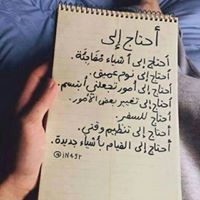 أحتاج إلى
أحتاج إلى أشياء مُفاجِئة.
أحتاج إلى نوم عميق.
أحتاج إلى أمور تجعلني أبتسم.
أحتاج إلى تغيير بعض الأمور.
أحتاج للسفر.
أحتاج إلى تنظيم وقتي.
أحتاج إلى القيام بأشياء جديدة.